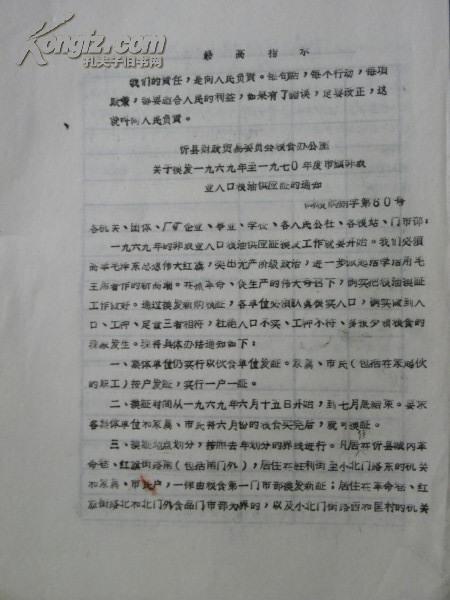 Kongfz.com
孔夫子旧书网
最高指示
我们的责任，是向人民负责。每句话，每个行动，每项
政策，都要适合人民的利益，如果有了错误，定要改正，这
就叫向人民负责。
忻县财政贸易委员会粮食办公室
关于换发一九六九年至一九七〇年度市镇非农
业人口粮油供应证的通知
字第60号
各机关、团体、厂矿企业、事业、学校、各人民公社、各粮站、门市部：
一九六九年的非农业人口粮油供应证换发工作就要开始。我们必须
高举毛泽东思想伟大红旗，突出无产阶级政治，进一步掀起活学活用毛
主席著作的新高潮。在抓革命、促生产的伟大号召下，切实把粮油换证
工作做好。通过换发新购粮证，各单位必须认真核实人口，切实做到人
口、工种、定量三者相符，杜绝人口不实、工种不符、多报少销粮食的
现象发生。现将具体办法通知如下：
一、集体单位仍实行以伙食单位发证。家属、市民（包括在家起伙
的职工）按户发证，实行一户一证。
二、换证时间从一九六九年六月十五日开始，到七月底结束。要求
各集体单位和家属、市民将六月份的粮食买完后，就可换证。
三、换证地点划分，按照去年划分的界线进行。凡居在忻县城内革
命街、红旗街路南（包括南门外），居住在胜利街至小北门路东的机关
和家属、市民户，一律由粮食第一门市部换发新证；居住在革命街、红
旗街路北和北门外食品门市部为界的，以及小北门街路西和匡村的机关